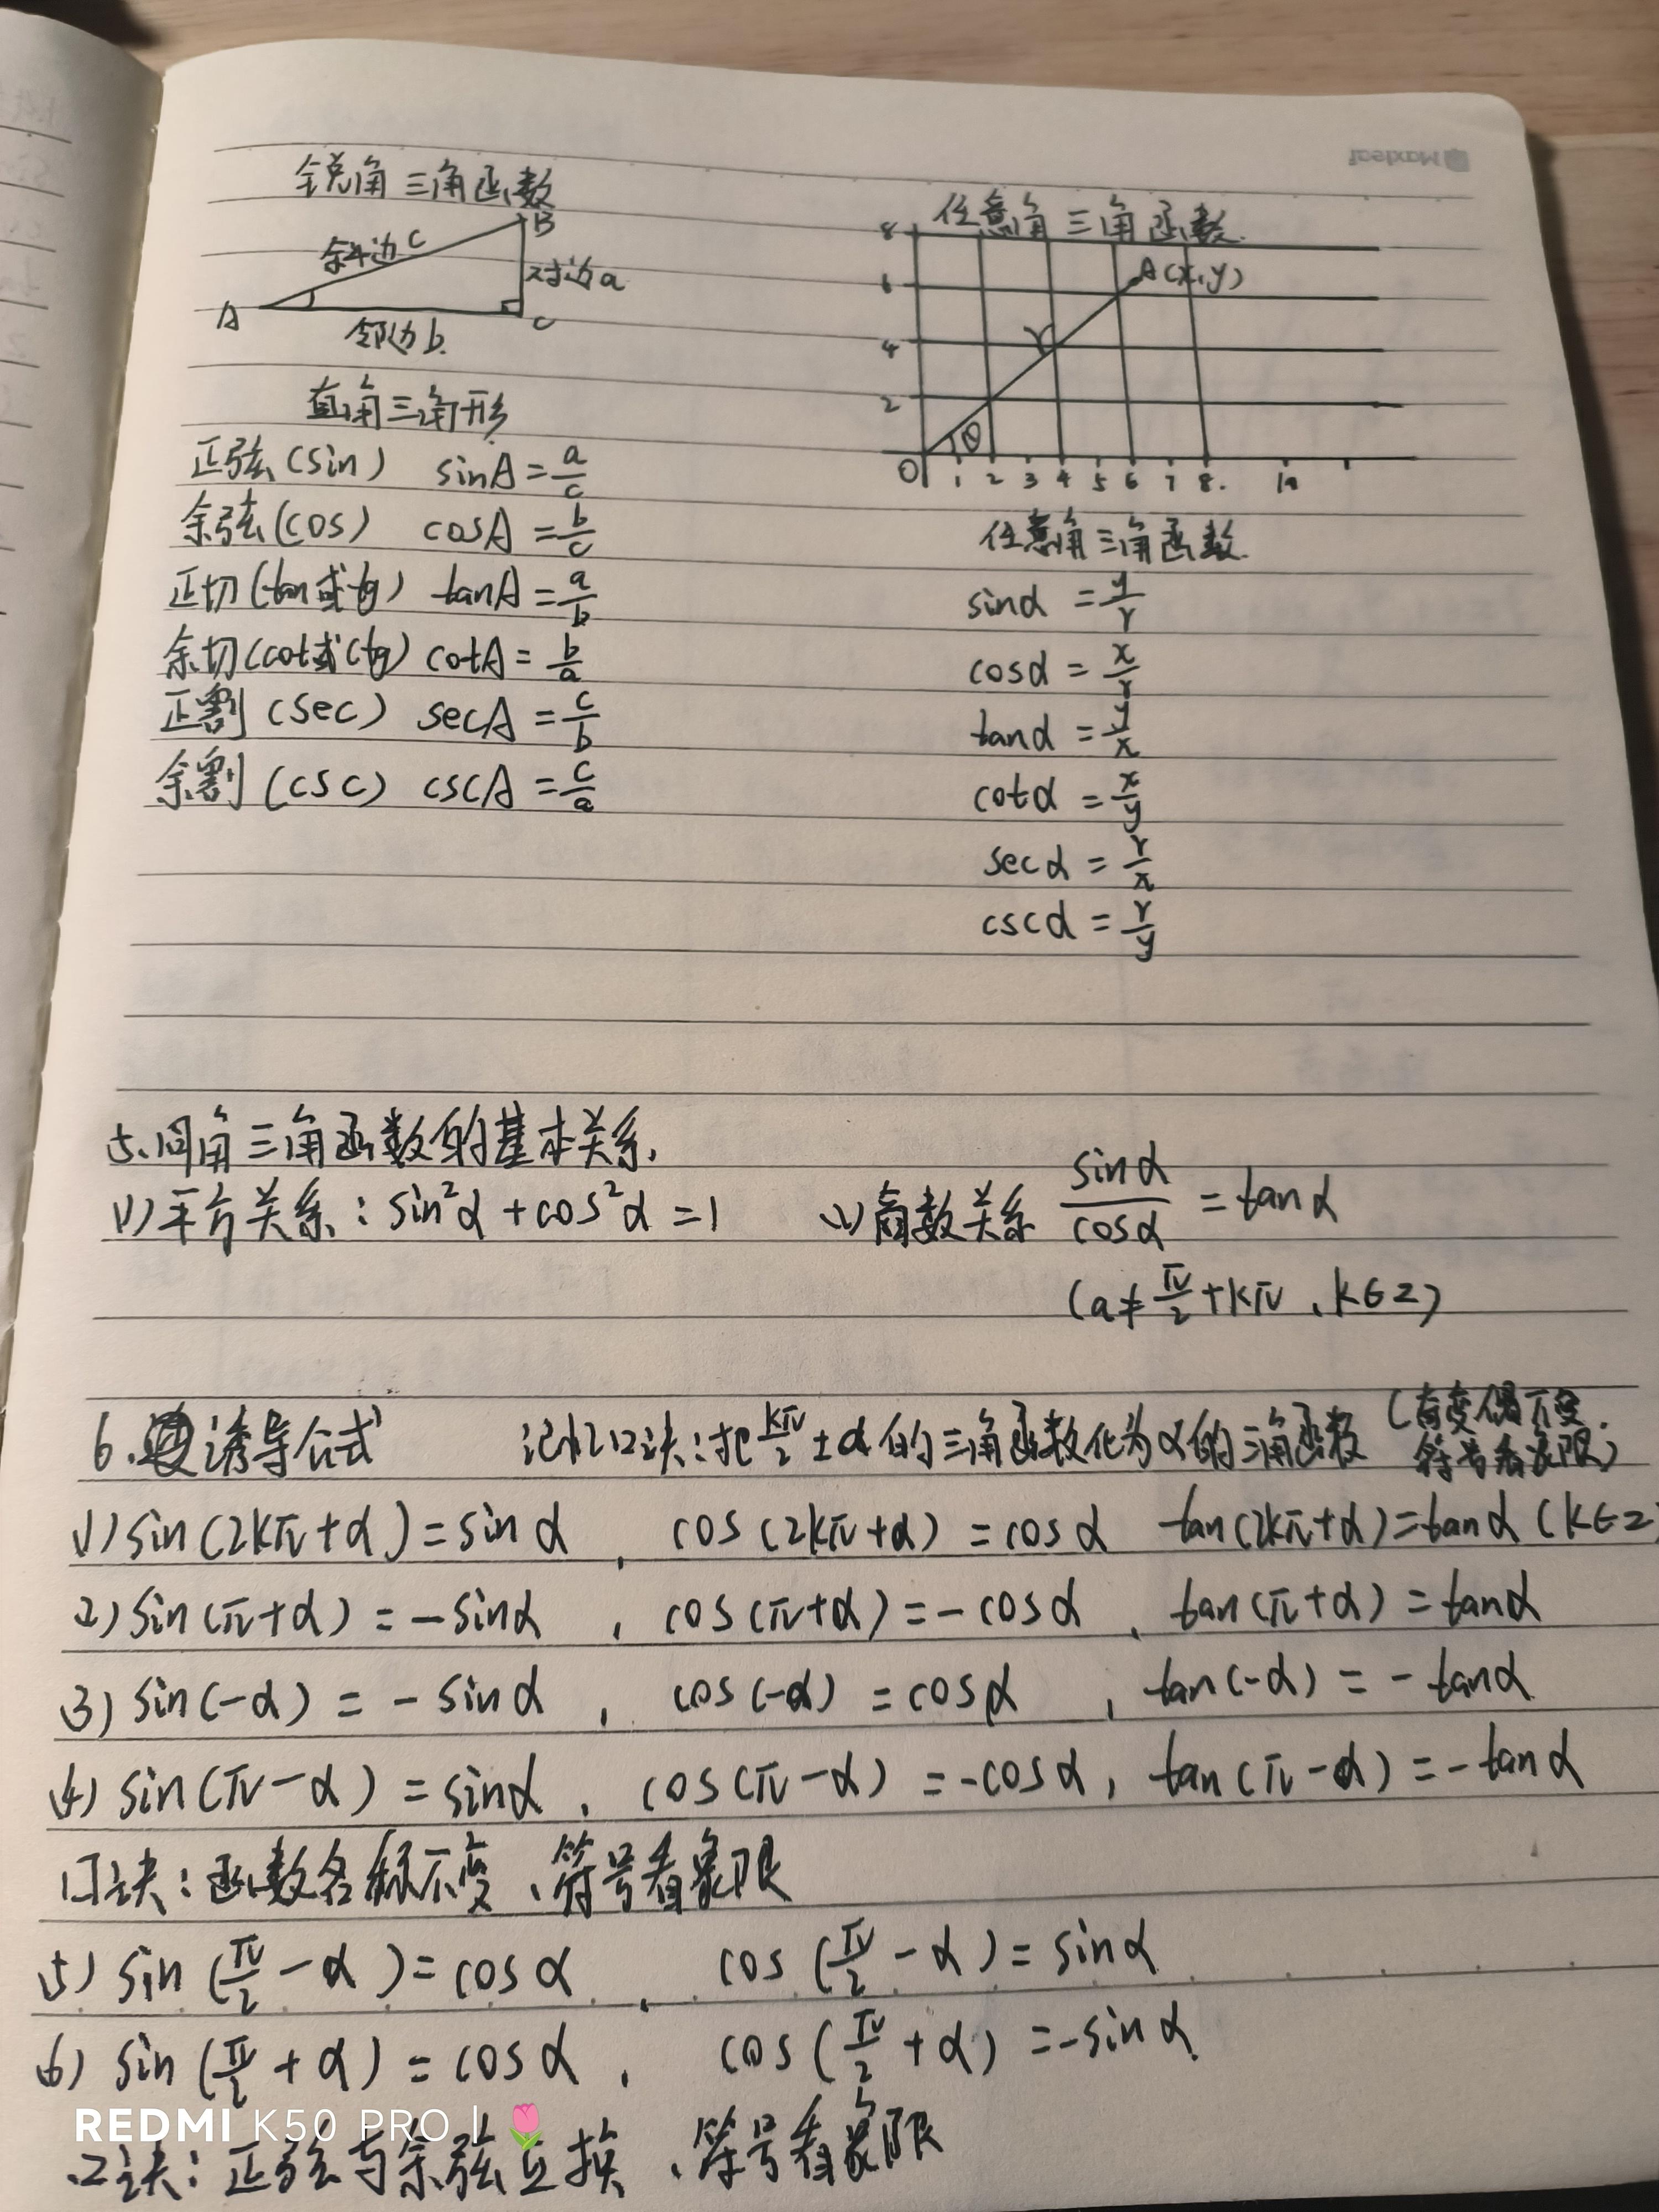 Maxleaf
锐角三角函数
B
斜边c
对边a
A
C
邻边b.
直角三角形
正弦(sin) sinA=a/c
余弦(cos) cosA=b/c
正切(tan或tg) tanA=a/b
余切(cot或ctg) cotA=b/a
正割(sec) secA=c/b
余割(csc) cscA=c/a
任意角三角函数.
8
6
A(x,y)
4
r
2
θ
0 1 2 3 4 5 6 7 8. 10
任意角三角函数.
sinα=y/r
cosα=x/r
tanα=y/x
cotα=x/y
secα=r/x
cscα=r/y
5.同角三角函数的基本关系.
(1)平方关系:sin²α+cos²α=1 (2)商数关系 sinα/cosα=tanα
(a≠π/2+kπ,k∈Z)
6.诱导公式 记忆口诀:把kπ/2±α的三角函数化为α的三角函数(奇变偶不变.
符号看象限)
(1)sin(2kπ+α)=sinα , cos(2kπ+α)=cosα tan(2kπ+α)=tanα(k∈Z
(2)sin(π+α)=-sinα , cos(π+α)=-cosα , tan(π+α)=tanα
(3)sin(-α)=-sinα , cos(-α)=cosα , tan(-α)=-tanα
(4)sin(π-α)=sinα , cos(π-α)=-cosα, tan(π-α)=-tanα
口诀:函数名称不变、符号看象限
(5)sin(π/2-α)=cosα , cos(π/2-α)=sinα
(6)sin(π/2+α)=cosα , cos(π/2+α)=-sinα
口诀:正弦与余弦互换、符号看象限
REDMI K50 PRO |